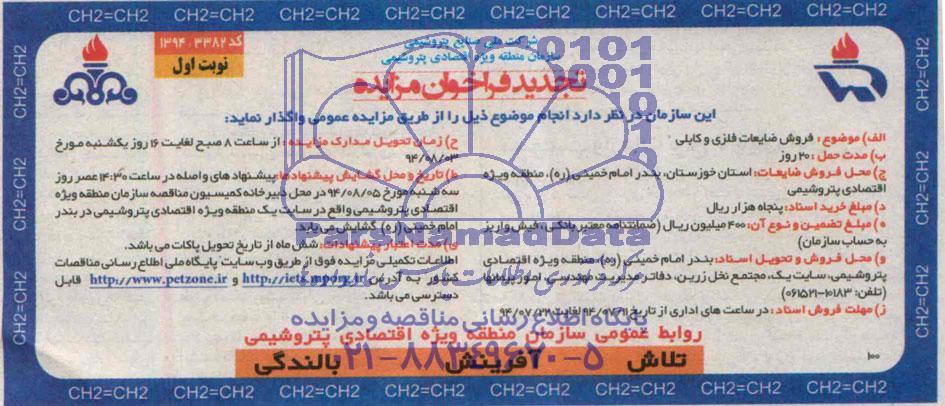 CH2=CH2 CH2=CH2 CH2=CH2 CH2=CH2 CH2=CH2 CH2=CH2 CH2=CH2 CH2=CH2
کد ۳۳۸۲ - ۱۳۹۴
نوبت اول
شرکت ملی صنایع پتروشیمی
سازمان منطقه ویژه اقتصادی پتروشیمی
تجدید فراخوان مزایده
این سازمان در نظر دارد انجام موضوع ذیل را از طریق مزایده عمومی واگذار نماید:
الف) موضوع: فروش ضایعات فلزی و کابلی
ب) مدت حمل: ۲۰ روز
ج) محل فروش ضایعات: استان خوزستان، بندر امام خمینی (ره)، منطقه ویژه
اقتصادی پتروشیمی
د) مبلغ خرید اسناد: پنجاه هزار ریال
ه) مبلغ تضمین و نوع آن: ۴۰۰ میلیون ریال (ضمانتنامه معتبر بانکی، فیش واریز
به حساب سازمان)
و) محل فروش و تحویل اسناد: بندر امام خمینی (ره)، منطقه ویژه اقتصادی
پتروشیمی، سایت یک، مجتمع نخل زرین، دفاتر مدیریت مهندسی، امور پیمانها
(تلفن: ۱۰۱۸۳-۰۶۱۵۲۱)
ز) مهلت فروش اسناد: در ساعت های اداری از تاریخ ۹۴/۰۷/۲۱ لغایت ۹۴/۰۷/۲۳
ح) زمان تحویل مدارک مزایده: از ساعت ۸ صبح لغایت ۱۶ روز یکشنبه مورخ
۹۴/۰۸/۰۳
ط) تاریخ و محل گشایش پیشنهادها: پیشنهادهای واصله در ساعت ۱۴:۳۰ عصر روز
سه شنبه مورخ ۹۴/۰۸/۰۵ در محل دبیرخانه کمیسیون مناقصه سازمان منطقه ویژه
اقتصادی پتروشیمی واقع در سایت یک منطقه ویژه اقتصادی پتروشیمی در بندر
امام خمینی (ره) گشایش می یابد.
ی) مدت اعتبار پیشنهادات: شش ماه از تاریخ تحویل پاکات می باشد.
اطلاعات تکمیلی مزایده فوق از طریق وب سایت پایگاه ملی اطلاع رسانی مناقصات
کشور به آدرس http://iets.mporg.ir و http://www.petzone.ir قابل
دسترسی می باشد.
روابط عمومی سازمان منطقه ویژه اقتصادی پتروشیمی
تلاش آفرینش بالندگی
۱۰۰
ParsNamadData
پایگاه اطلاع رسانی مناقصه و مزایده
۰۲۱-۸۸۳۴۹۶۷۰-۵
CH2=CH2 CH2=CH2 CH2=CH2 CH2=CH2 CH2=CH2 CH2=CH2 CH2=CH2 CH2=CH2